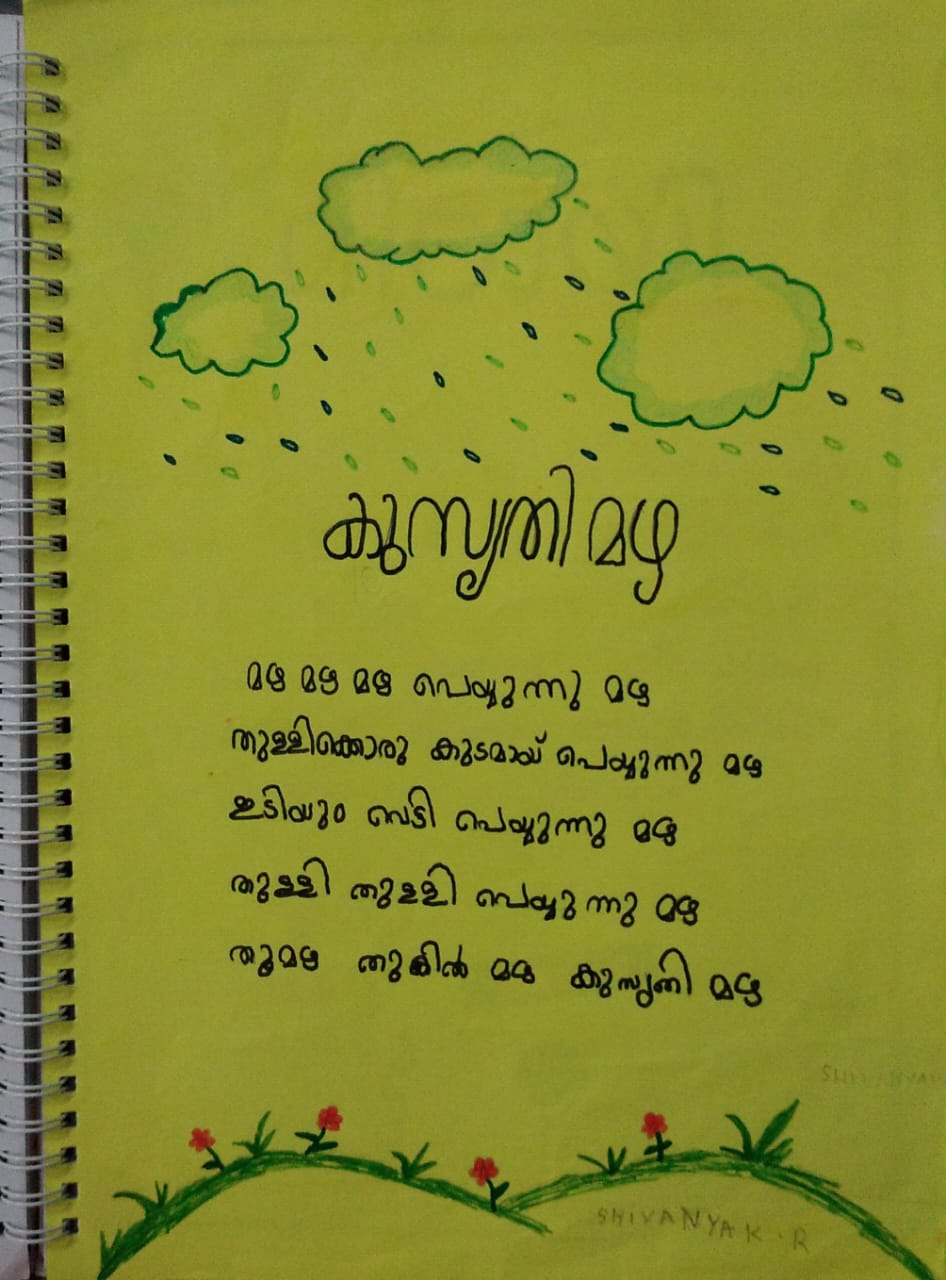 കുസൃതി മഴ
മഴ മഴ മഴ പെയ്യുന്നു മഴ
തുള്ളിക്കൊരു കുടമായ് പെയ്യുന്നു മഴ
ഇടിയും വെട്ടി പെയ്യുന്നു മഴ
തുള്ളി തുള്ളി പെയ്യുന്നു മഴ
തൂമഴ മഴ കുസൃതി മഴ
SHIVANYA K.R